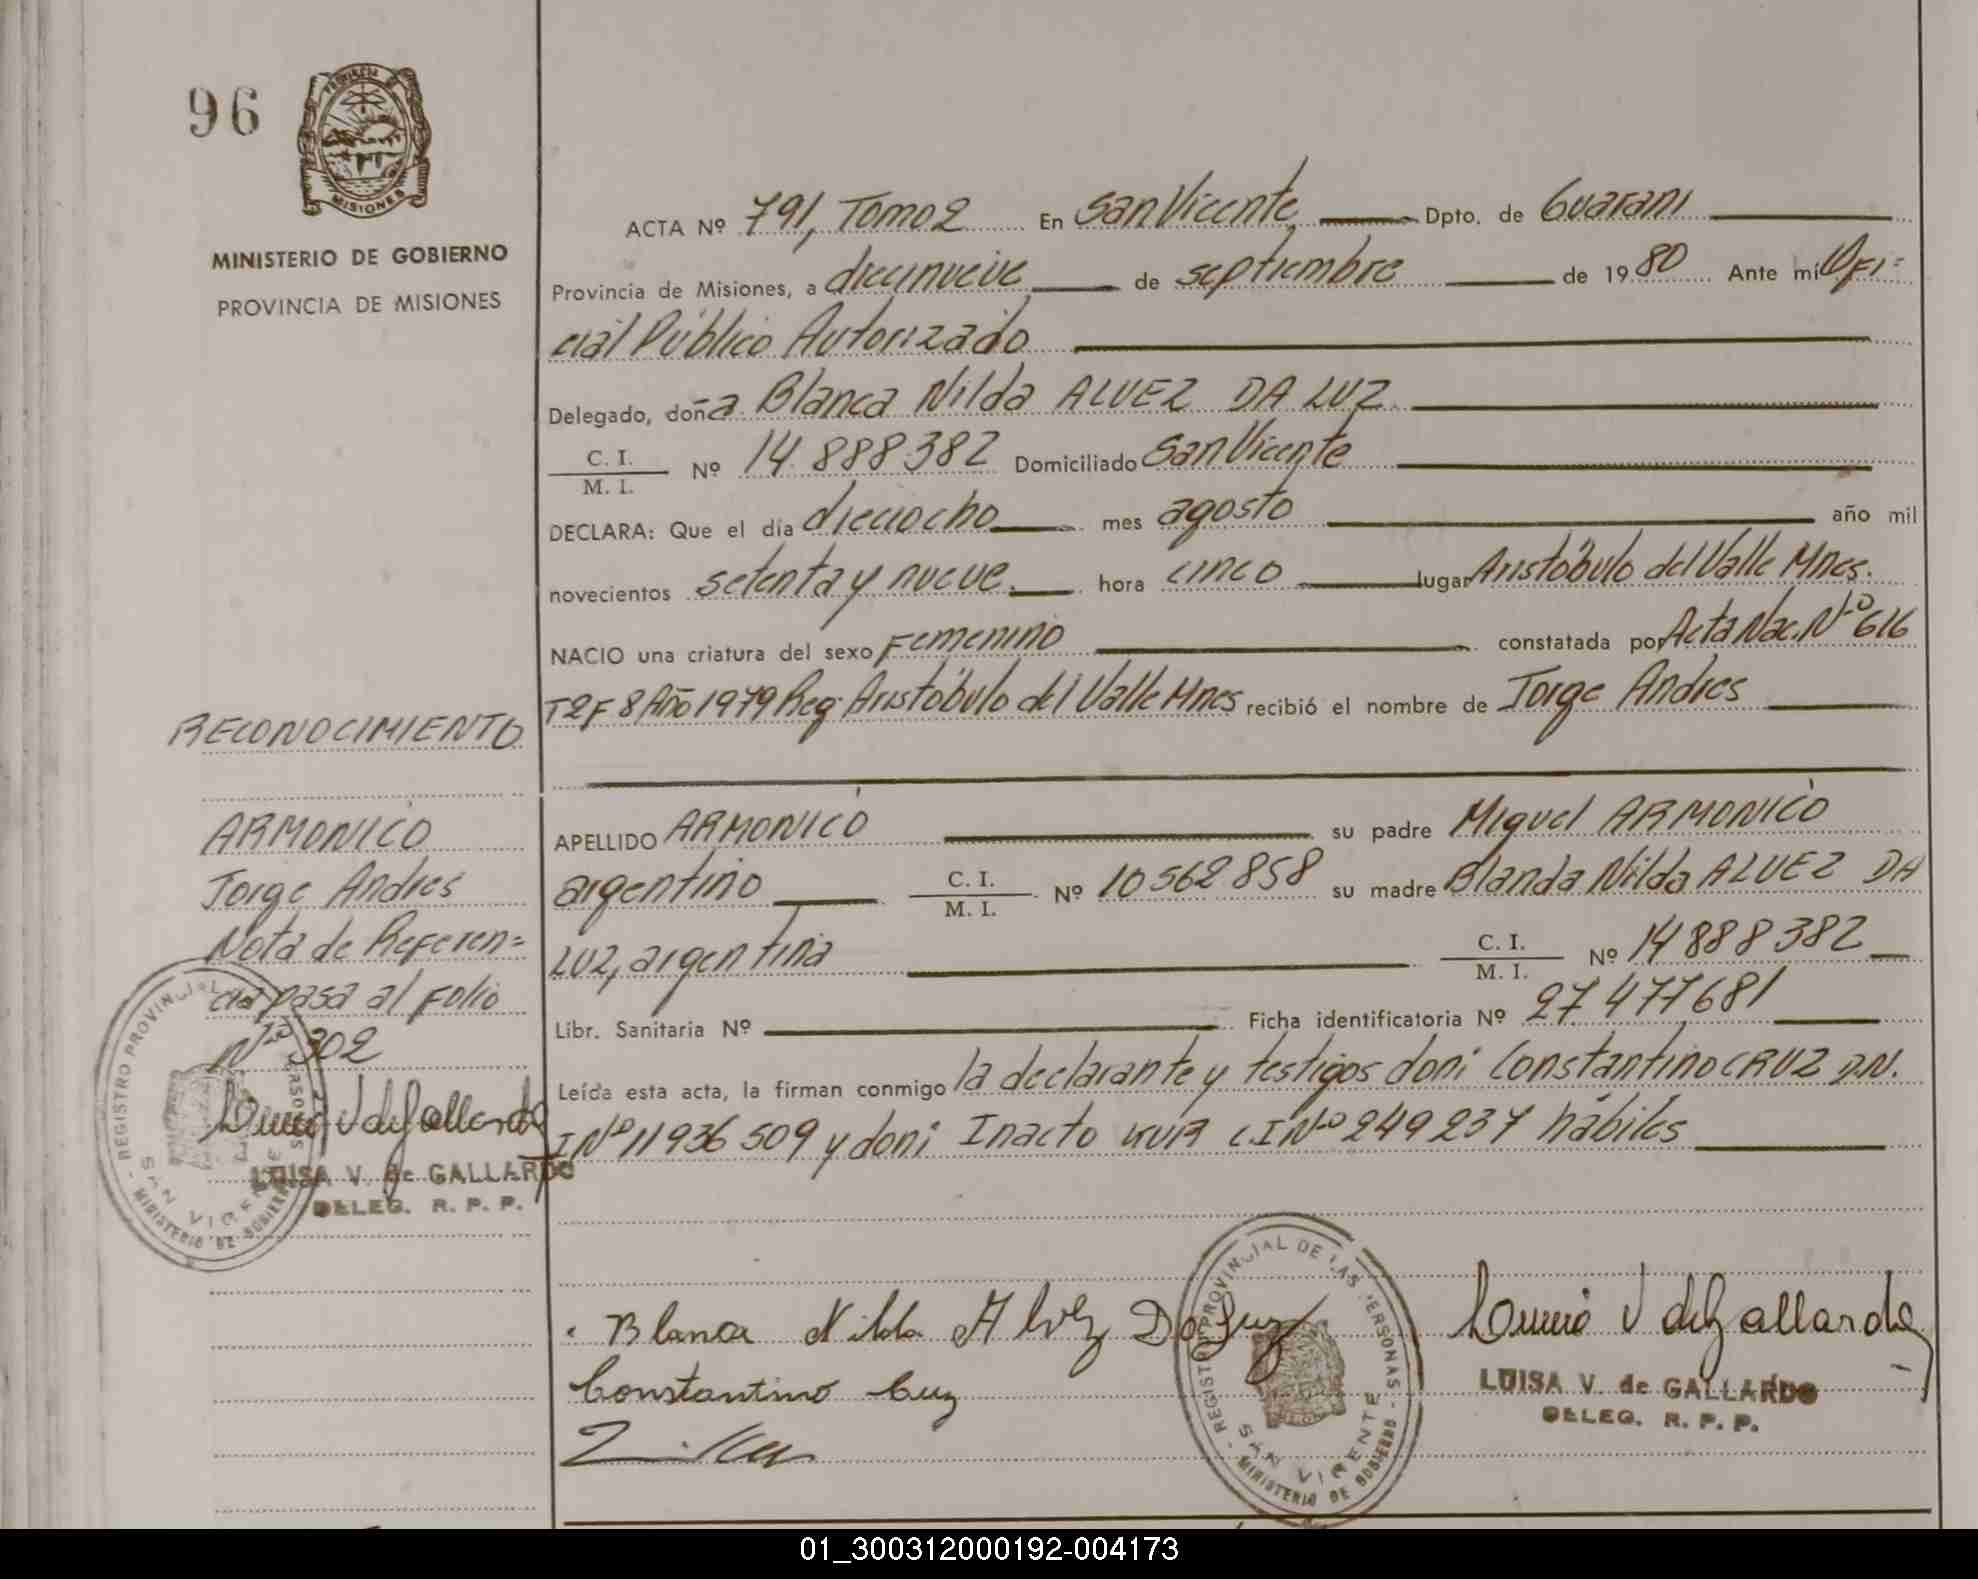 96
PROVINCIA DE
MISIONES
MINISTERIO DE GOBIERNO
PROVINCIA DE MISIONES
ACTA Nº 791, Tomo 2 En San Vicente Dpto. de Guarani
Provincia de Misiones, a diecinueve de septiembre de 1980 Ante mí Ofi=
cial Público Autorizado
Delegado, doña Blanca Nilda ALVEZ DA LUZ
C. I.
M. I. Nº 14.888.382 Domiciliado San Vicente
DECLARA: Que el día dieciocho mes agosto año mil
novecientos setenta y nueve. hora cinco lugar Aristóbulo del Valle Mnes.
NACIO una criatura del sexo Femenino constatada por Acta Nac. Nº 616
T2F8 Año 1979 Reg. Aristóbulo del Valle Mnes recibió el nombre de Jorge Andres
RECONOCIMIENTO
APELLIDO ARMONICÓ su padre Miguel ARMONICÓ
argentino C. I. M. I. Nº 10562858 su madre Blanda Nilda ALVEZ DA
LUZ, argentina C. I. M. I. Nº 14888382
Libr. Sanitaria Nº Ficha identificatoria Nº 27477681
Leída esta acta, la firman conmigo la declarante y testigos don: Constantino CRUZ D.N.
I Nº 11936509 y don: Inacto KUR C.I Nº 249237 hábiles
ARMONICÓ
Jorge Andres
Nota de Referen=
cia pasa al Folio
Nº 302
LUISA V. de GALLARDO
DELEG. R. P. P.
REGISTRO PROVINCIAL DE LAS PERSONAS
SAN VICENTE
MINISTERIO DE GOBIERNO
Blanca Nilda Alvez Da Luz
Constantino Cruz
REGISTRO PROVINCIAL DE LAS PERSONAS
SAN VICENTE
MINISTERIO DE GOBIERNO
LUISA V. de GALLARDO
DELEG. R. P. P.
01_300312000192-004173